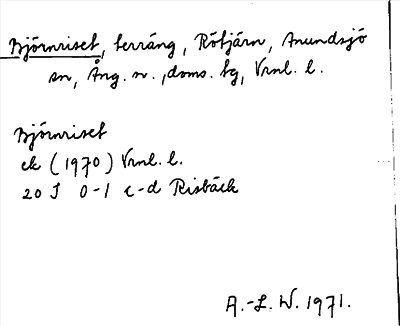 Björnriset, terräng, Rötjärn, Anundsjö
sn, Ång. n., doms. tg, Vrnl. l.
Björnriset
ek (1970) Vrnl. l.
20 J 0-1 c-d Risbäck
A.-L. W. 1971.